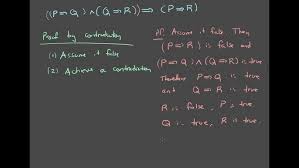 ((P ⇒ Q) ∧ (Q ⇒ R)) ⟹ (P ⇒ R)
Proof by contradiction
(1) Assume it false
(2) Achieve a contradiction
Pf. Assume it false. Then
(P ⇒ R) is false and
(P ⇒ Q) ∧ (Q ⇒ R) is true
Therefore P ⇒ Q is true
and Q ⇒ R is true
R is false, P is true.
Q is true, R is true.